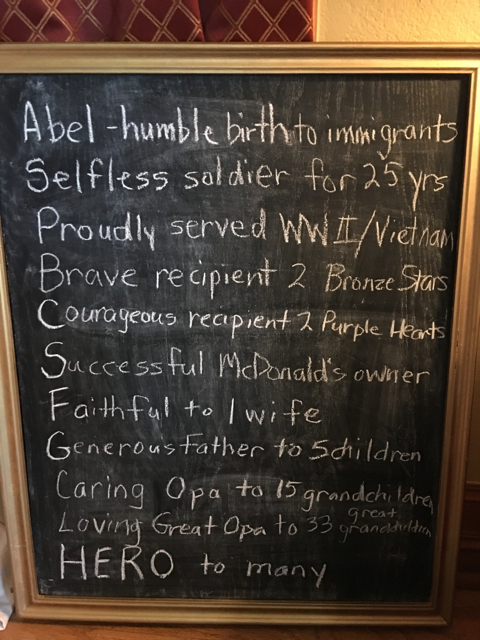 Abel - humble birth to immigrants
Selfless soldier for 25 yrs
Proudly served WWII/Vietnam
Brave recipient 2 Bronze Stars
Courageous recipient 2 Purple Hearts
Successful McDonald's owner
Faithful to 1 wife
Generous Father to 5 children
Caring Opa to 15 grandchildren
Loving Great Opa to 33 great grandchildren
HERO to many